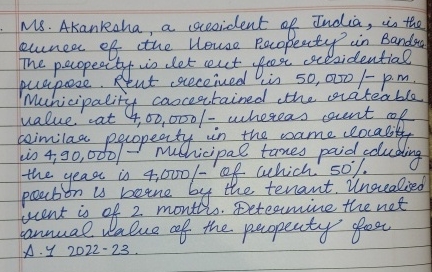 . Ms. Akanksha, a resident of India, is the
owner of the House Property in Bandra
The property is let out for residential
purpose. Rent received is 50,000/- p.m.
Municipality cascertained the rateable
value at 4,00,000/- whereas rent of
similar property in the same locality
is 4,90,000/- Municipal taxes paid during
the year is 4,000/- of which 50%.
portion is borne by the tenant. Unrealised
rent is of 2 months. Determine the net
annual value of the property for
A.Y 2022-23.